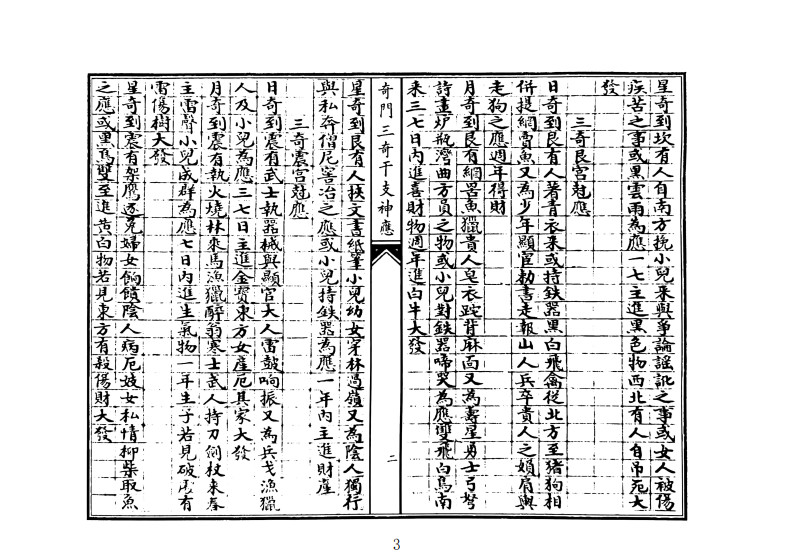 星奇到坎有人自南方挽小兒來與爭論謠訛之事或女人被傷
疾苦之事或黑雲雨為應一七主進黑色物西北有人自吊死大
發
三奇艮宮尅應
日奇到艮有人著青衣來或持鉄器黑白飛禽從北方至猪狗相
併提網賣魚又為少年顯宦勅書走報山人兵卒貴人之嬪肩輿
走狗之應週年得財
月奇到艮有網罟魚獵貴人皂衣跎背麻面又為壽星勇士弓弩
詩畫炉瓶灣曲方員之物或小兒對鉄器啼哭為應雙飛白鳥南
来三七日内進喜財物週年進白牛大發
奇門三奇干支神應
二
星奇到艮有人挾文書紙筆小兒幼女穿林過嶺又為陰人獨行
與私奔僧尼窖冶之應或小兒持鉄器為應一年內主進財產
三奇震宮尅應
日奇到震有武士執器械與顯官大人雷鼓响振又為兵戈漁獵
人及小兒為應三七日主進金寳東方女產厄其家大發
月奇到震有執火燒林來馬漁獵醉翁寒士武人持刀倒杖來奉
主雷聲小兒成群為應七日內進生氣物一年生子若見破屋有
雷傷樹大發
星奇到震有架鷹逐兔婦女餉饋陰人病厄妓女私情柳柴取魚
之應或黑鳥雙至進黄白物若見東方有殺傷財大發
3